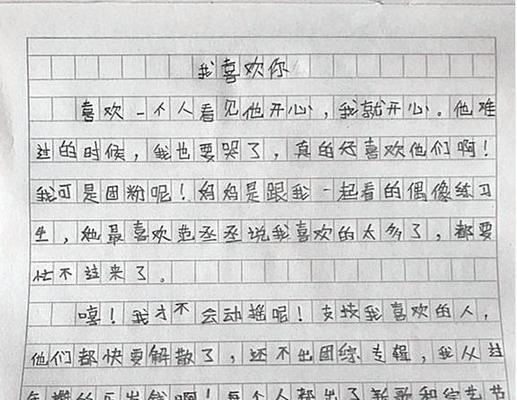 我喜欢你
喜欢一个人看见他开心，我就开心。他难
过的时候，我也要哭了，真的好喜欢他们啊！
我可是团粉呢！妈妈是跟我一起看的偶像练习
生，她最喜欢范丞丞说我喜欢的太多了，都要
忙不过来了。
嘻！我才不会动摇呢！支持我喜欢的人，
他们都快要解散了，还不出团综专辑，我从过
年攒的 钱啊！每个人都出了新歌和综艺节